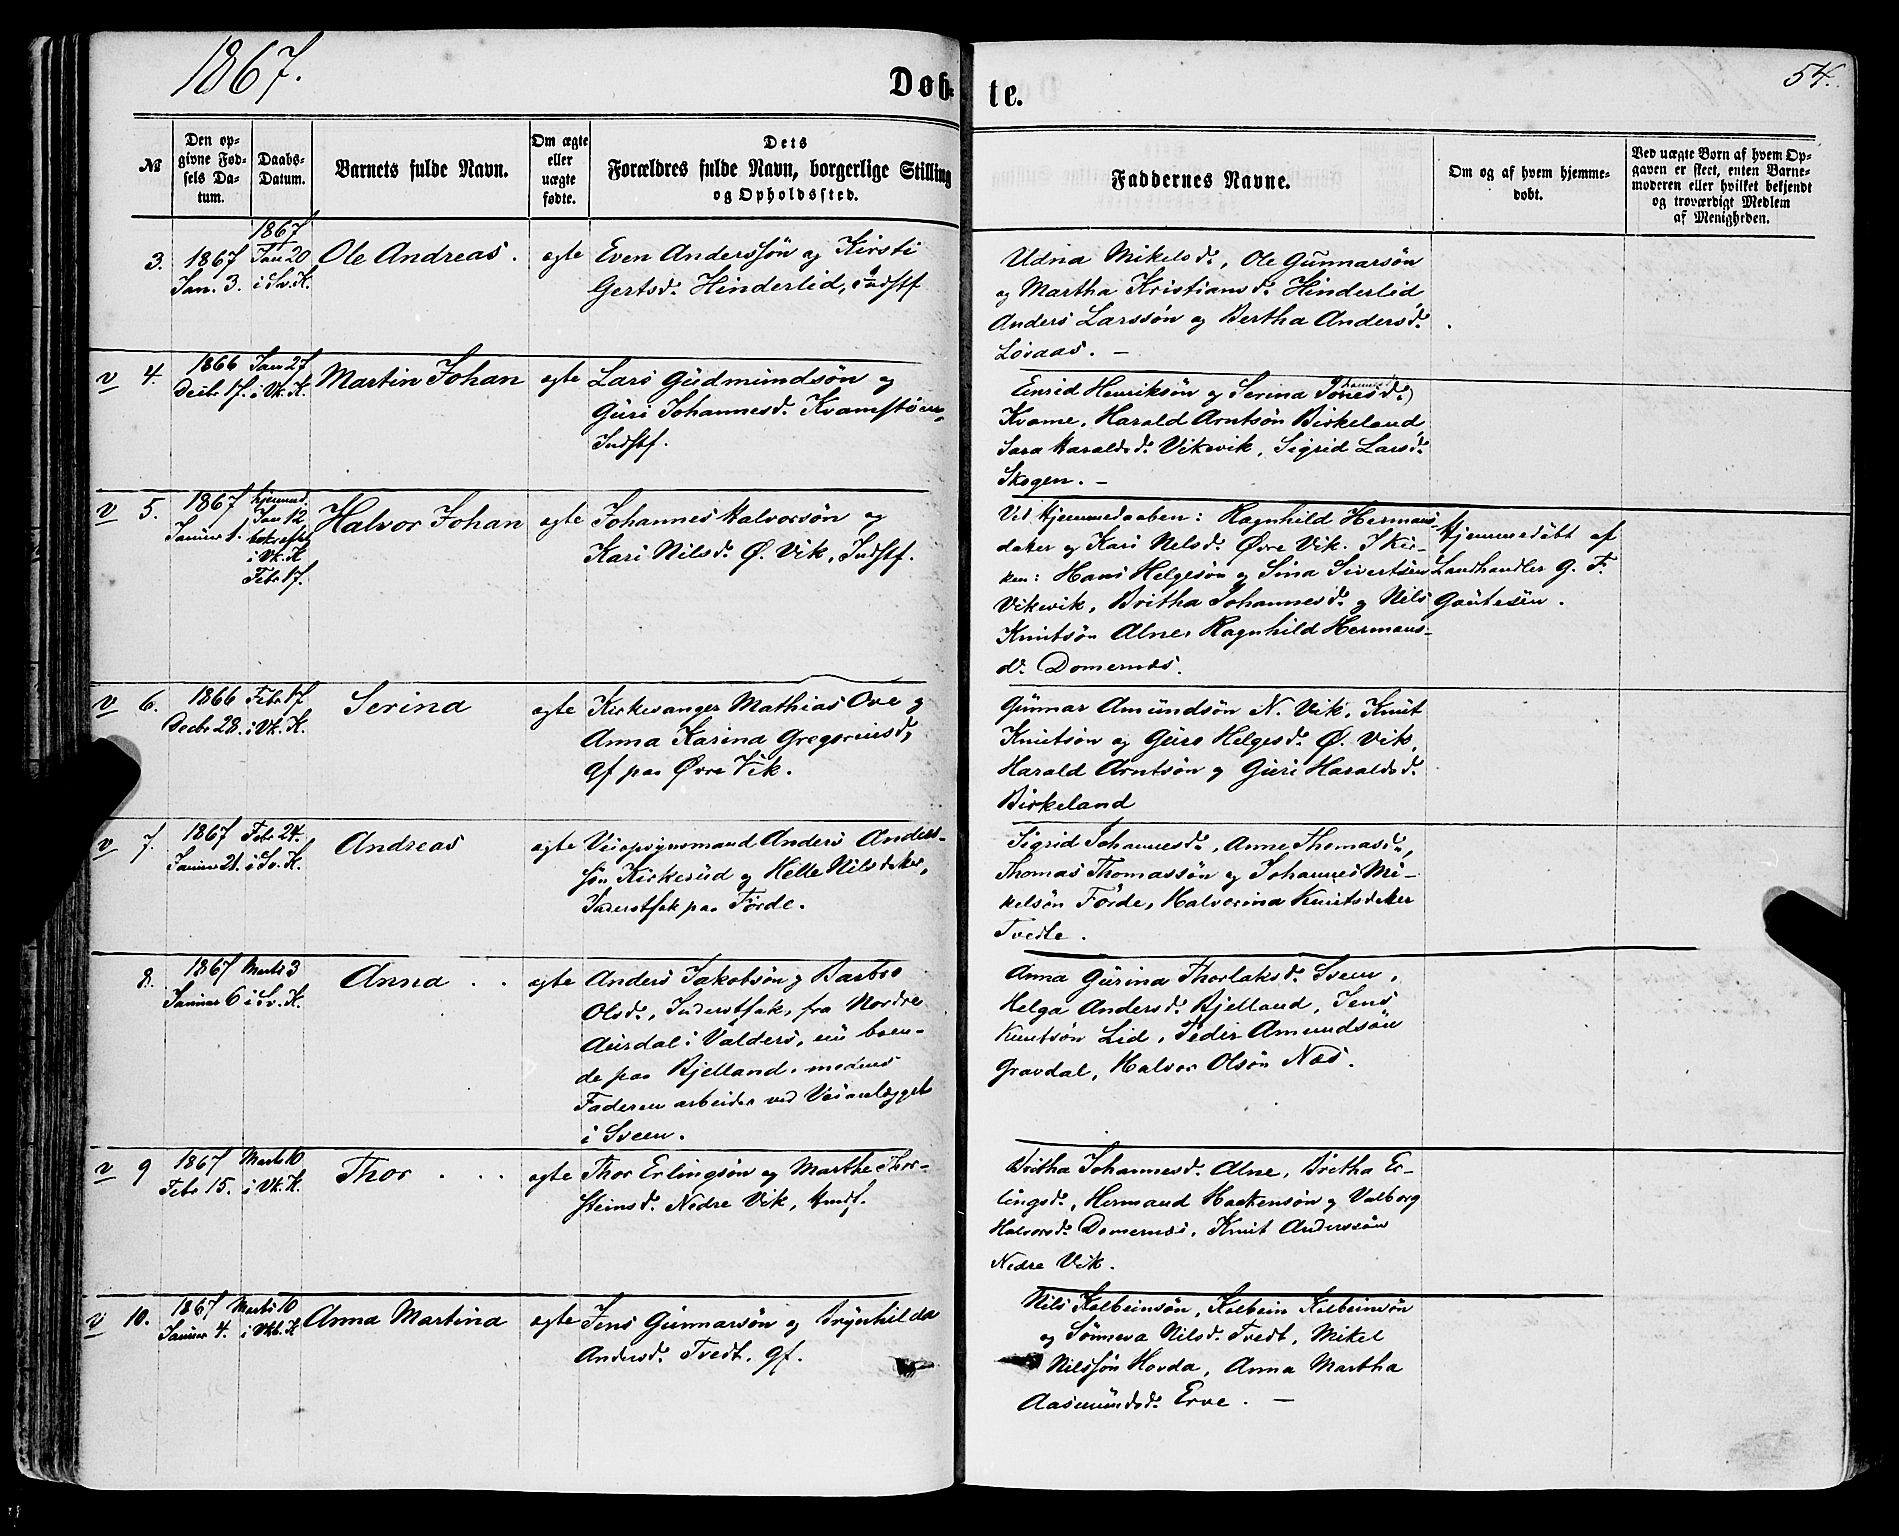 1867.
Døb-
te.
54.
№
Den op-
givne Fød-
sels Da-
tum.
Daabs-
Datum.
Barnets fulde Navn.
Om ægte
eller
uægte
fødte.
Dets
Forældres fulde Navn, borgerlige Stilling
og Opholdssted.
Faddernes Navne.
Om og af hvem hjemme-
døbt.
Ved uægte Børn af hvem Op-
gaven er skeet, enten Barne-
moderen eller hvilket bekjendt
og troværdigt Medlem
af Menigheden.
3.
1867
Jan. 3.
1867
Jan 20
i Sv. K.
Ole Andreas.
egte
Even Anderssøn og Kirsti
Gertsd. Hinderlid, indstf
Udna Mikelsd., Ole Gunnarsøn
og Martha Kristiansd. Hinderlid
Anders Larssøn og Bertha Andersd.
Løvaas. —
v 4.
1866
Decbr 17.
Jan 27
i Vk. K.
Martin Johan
egte
Lars Gudmundsøn og
Guri Johannesd. Kvamstøen,
Indstf.
Henriksøn og Serina
Kvame, Harald Arntsøn Birkeland
Sara Haraldsd. Vikevik, Sigrid Larsd.
Skogen. —
v 5.
1867
Januar 1.
hjemmed.
Jan 12
i Vk. K.
Febr 17.
Halvor Johan
egte
Johannes Halvorsøn og
Kari Nilsd. Ø. Vik, Indstf.
Ved Hjemmedaaben: Ragnhild Hermans-
dater og Kari Nelsd. Øvre Vik. I Kir-
ken: Hans Helgesøn og Sina Sivertsen
Vikevik, Britha Johannesd. og Nils
Knutsøn Alne, Ragnhild Hermans-
d. Domernes.
Hjemmedøbt af
Landhandler G. F.
Gautesen.
v 6.
1866
Decbr 28.
Febr 17
i Vk. K.
Serina
egte
Kirkesanger Mathias Ove og
Anna Karina Gregoriusd,
gf paa Øvre Vik.
Gunnar Amundsøn N. Vik, Knut
Knutsøn og Guro Helgesd. Ø. Vik,
Harald Arntsøn og Guri Haraldsd.
Birkeland
v 7.
1867
Januar 21.
Febr 24.
i Sv. K.
Andreas
egte
Veiopsynsmand Anders Anders-
søn Kirkerud og Helle Nilsdater,
Inderstfolk paa Førde.
Sigrid Johannesd., Anne Thomasd.,
Thomas Thomassøn og Johannes Mi-
kelsøn Førde, Halvorina Knutsdater
Tvedte.
8.
1867
Januar 6
Marts 3
i Sv. K.
Anna . .
egte
Anders Jakobsøn og Barbro
Olsd., Inderstfolk, fra Nordre
Aurdal i Valders, nu boen-
de paa Bjelland, medens
Faderen arbeider ved Veianlægget
i Sveen.
Anna Gurina Thorlaksd. Sveen,
Helga Andersd. Bjelland, Jens
Knutsøn Lid, Peder Amundsøn
Gravdal, Halvor Olsøn Næs.
v 9
1867
Febr 15.
Marts 10
i Vk. K.
Thor . . .
egte
Thor Erlingsøn og Marthe Thor-
steinsd. Nedre Vik, Hmdf.
Britha Johannesd. Alne, Britha Er-
lingsd., Hermand Haakensøn og Valborg
Halvorsd. Domernes, Knut Anderssøn
Nedre Vik.
v 10.
1867
Januar 4.
Marts 10
i Vkb. K
Anna Martina
egte
Jens Gunnarsøn og Brynhilda
Andersd. Tvedt, gf.
Nils Kolbeinsøn, Kolbein Kolbeinsøn
og Sønneva Nilsd. Tvedt, Mikel
Nilssøn Hovda, Anna Martha
Aasmundsd. Erve. —